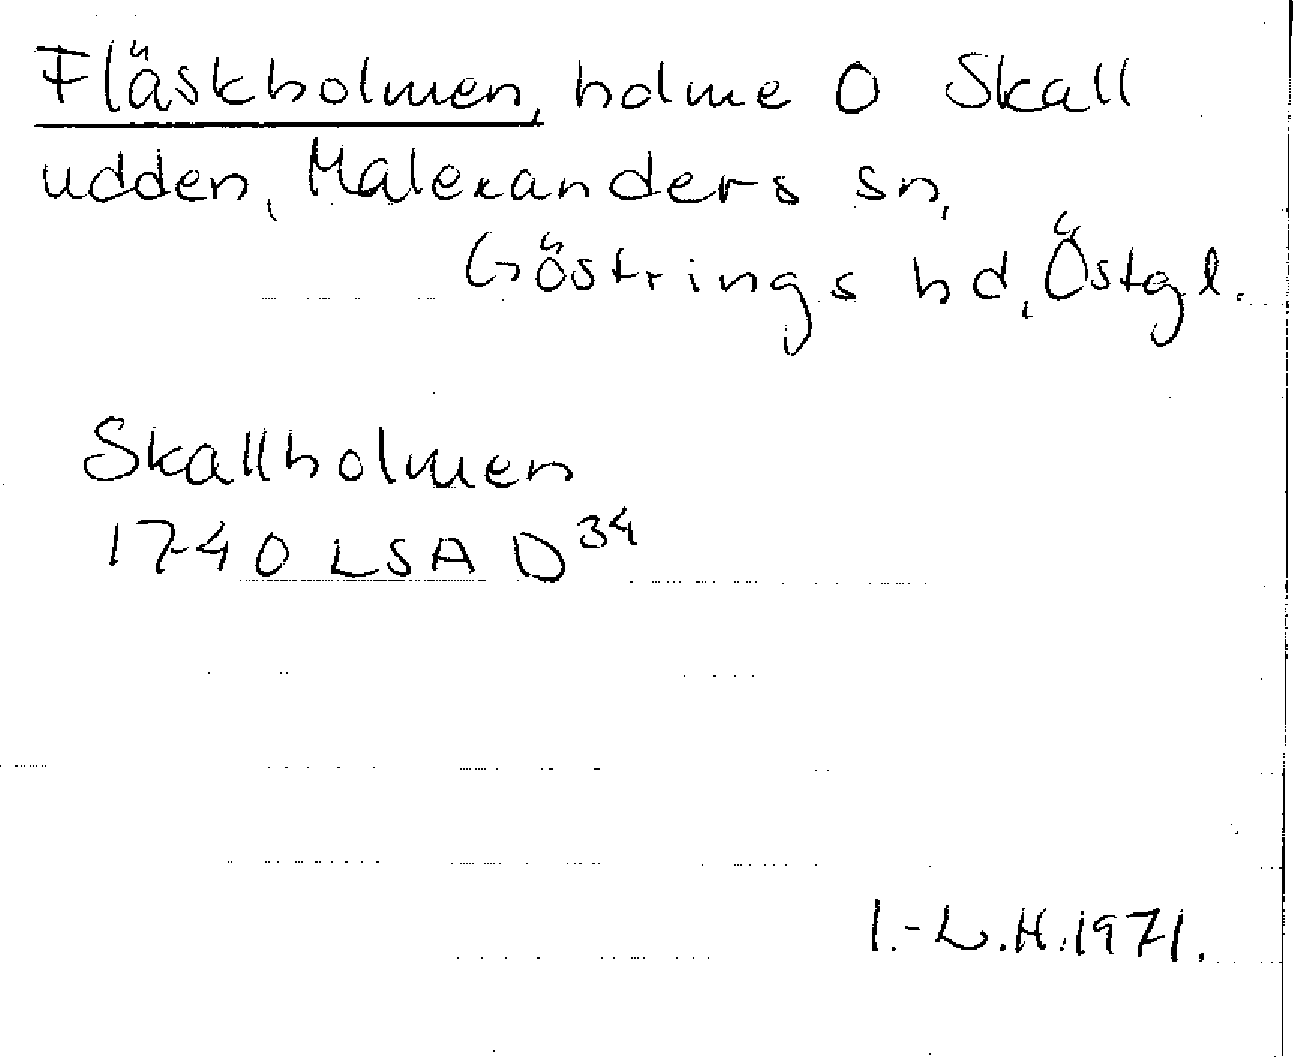 Fläskholmen, holme O Skall
udden, Malexanders sn,
Göstrings hd, Östgl.
Skallholmen
1740 LSA D34
I.-L.H. 1971.